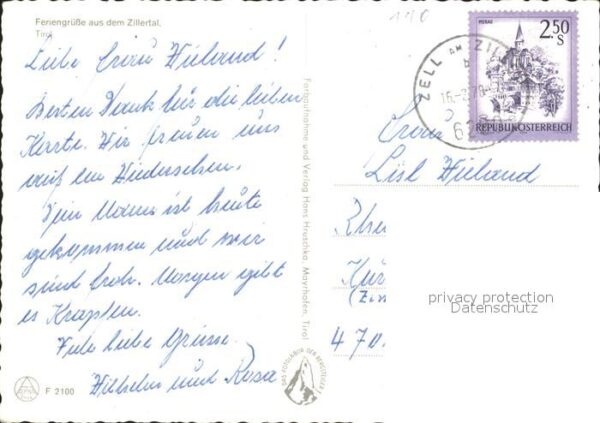 Feriengrüße aus dem Zillertal,
Tirol
Liebe Frau Wieland!
Besten Dank für die lieben
Karte. Wir freuen uns
auf ein Wiedersehen.
Mann ist heute
gekommen und wir
sind froh. Morgen gibt
es Krapfen.
Viele liebe Grüsse
Wilhelm und Rosa
F 2100
Farbaufnahme und Verlag Hans Hruschka, Mayrhofen, Tirol
116
MURAU
2.50
S
REPUBLIK ÖSTERREICH
ZELL AM ZILL
Frau
Lisl Wieland
Rhe
Kur
(Zim
470
privacy protection
Datenschutz